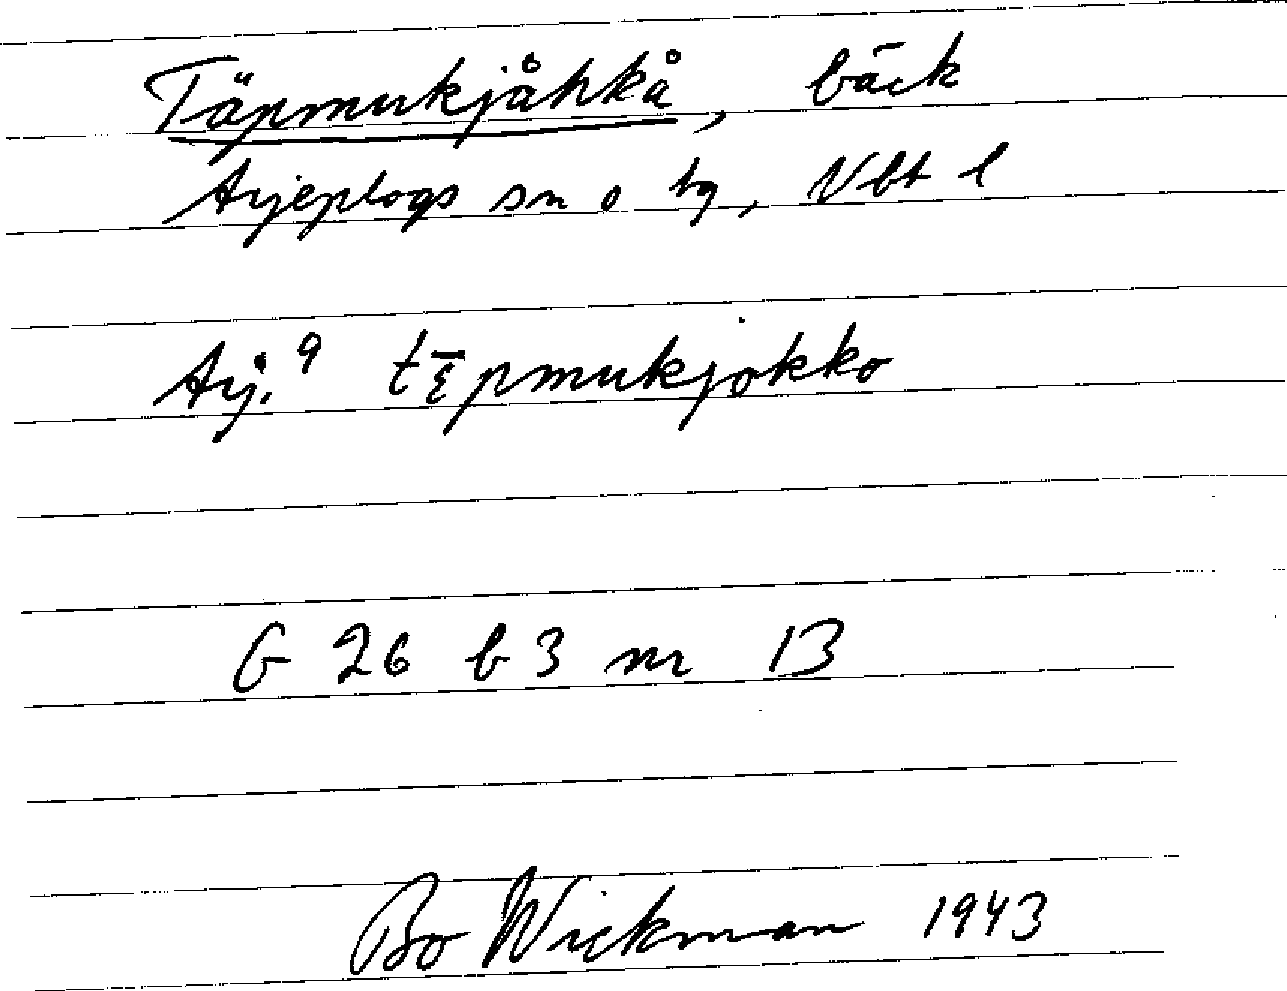 Täpmukjåhkå, bäck
Arjeplogs sn o tg, Vbt l
Arj. 9 tε̄pmukjokko
G 26 b 3 nr 13
Bo Wickman 1943